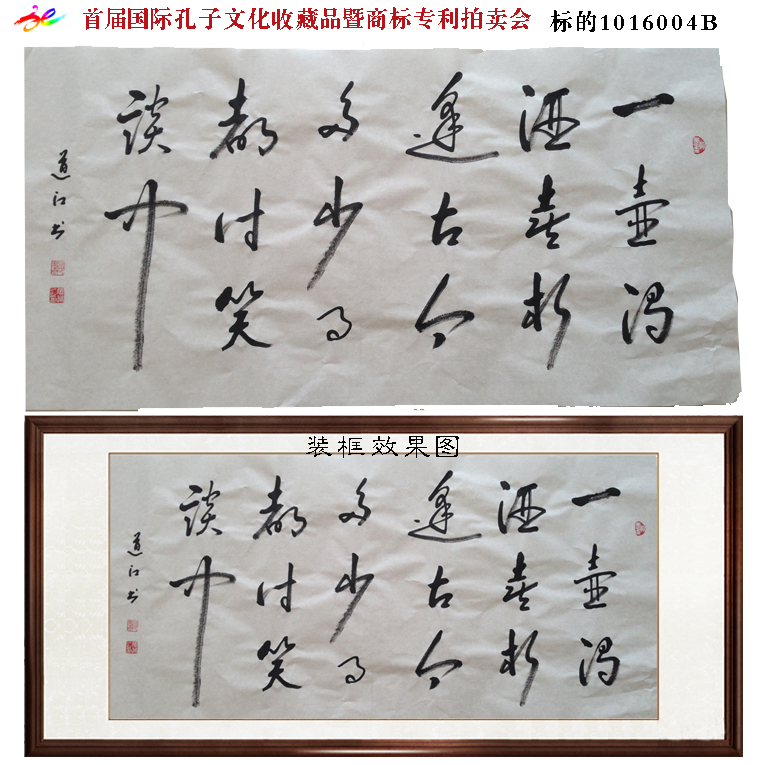 首届国际孔子文化收藏品暨商标专利拍卖会 标的1016004B
一壶浊
酒喜相
逢古今
多少事
都付笑
谈中
道江书
装框效果图
一壶浊
酒喜相
逢古今
多少事
都付笑
谈中
道江书